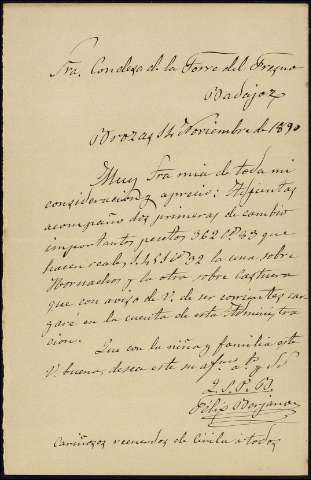 Sra. Condesa de la Torre del Fresno
Badajoz
Brozas 14 Noviembre de 1890
Muy Sra mia de toda mi
consideracion y aprecio: Adjuntas
acompaño dos primeras de cambio
importantes pesetas 362 Cs 43 que
hacen reales la una sobre
Hornachos y la otra sobre Castuera
que con aviso de V. de ser corrientes car
garé en la cuenta de esta Administra
cion.
Que con la niña y familia esté
V. buena, desea este su afmo. a. y SS
Q. S. P. B.
Felix Berjano
Cariñosos recuerdos de Cirila á todos